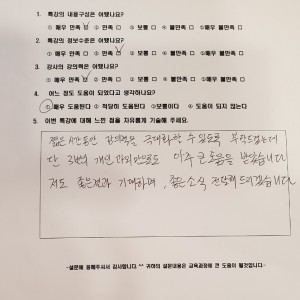 1. 특강의 내용구성은 어땠나요?
①매우 만족 □ ② 만족 □ ③ 보통 □ ④ 불만족 □ ⑤매우불만족 □
2. 특강의 정보수준은 어땠나요?
①매우 만족 □ ② 만족 □ ③ 보통 □ ④ 불만족 □ ⑤매우불만족 □
3. 강사의 강의력은 어땠나요?
①매우 만족 □ ② 만족 □ ③ 보통 □ ④ 불만족 □ ⑤매우불만족 □
4. 어느 정도 도움이 되었다고 생각하나요?
①매우 도움된다 ② 적당히 도움된다 ③보통이다 ④ 도움이 되지 않는다
5. 이번 특강에 대해 느낀 점을 자유롭게 기술해 주세요.
짧은 시간동안 강의력을 극대화할 수 있도록 부탁드렸는데
단 3번의 개인과외만으로도 아주 큰 도움을 받았습니다
저도 좋은결과 기대하며, 좋은소식 전달해드리겠습니다
-설문에 응해주셔서 감사합니다.^^ 귀하의 설문내용은 교육과정에 큰 도움이 될것입니다.-